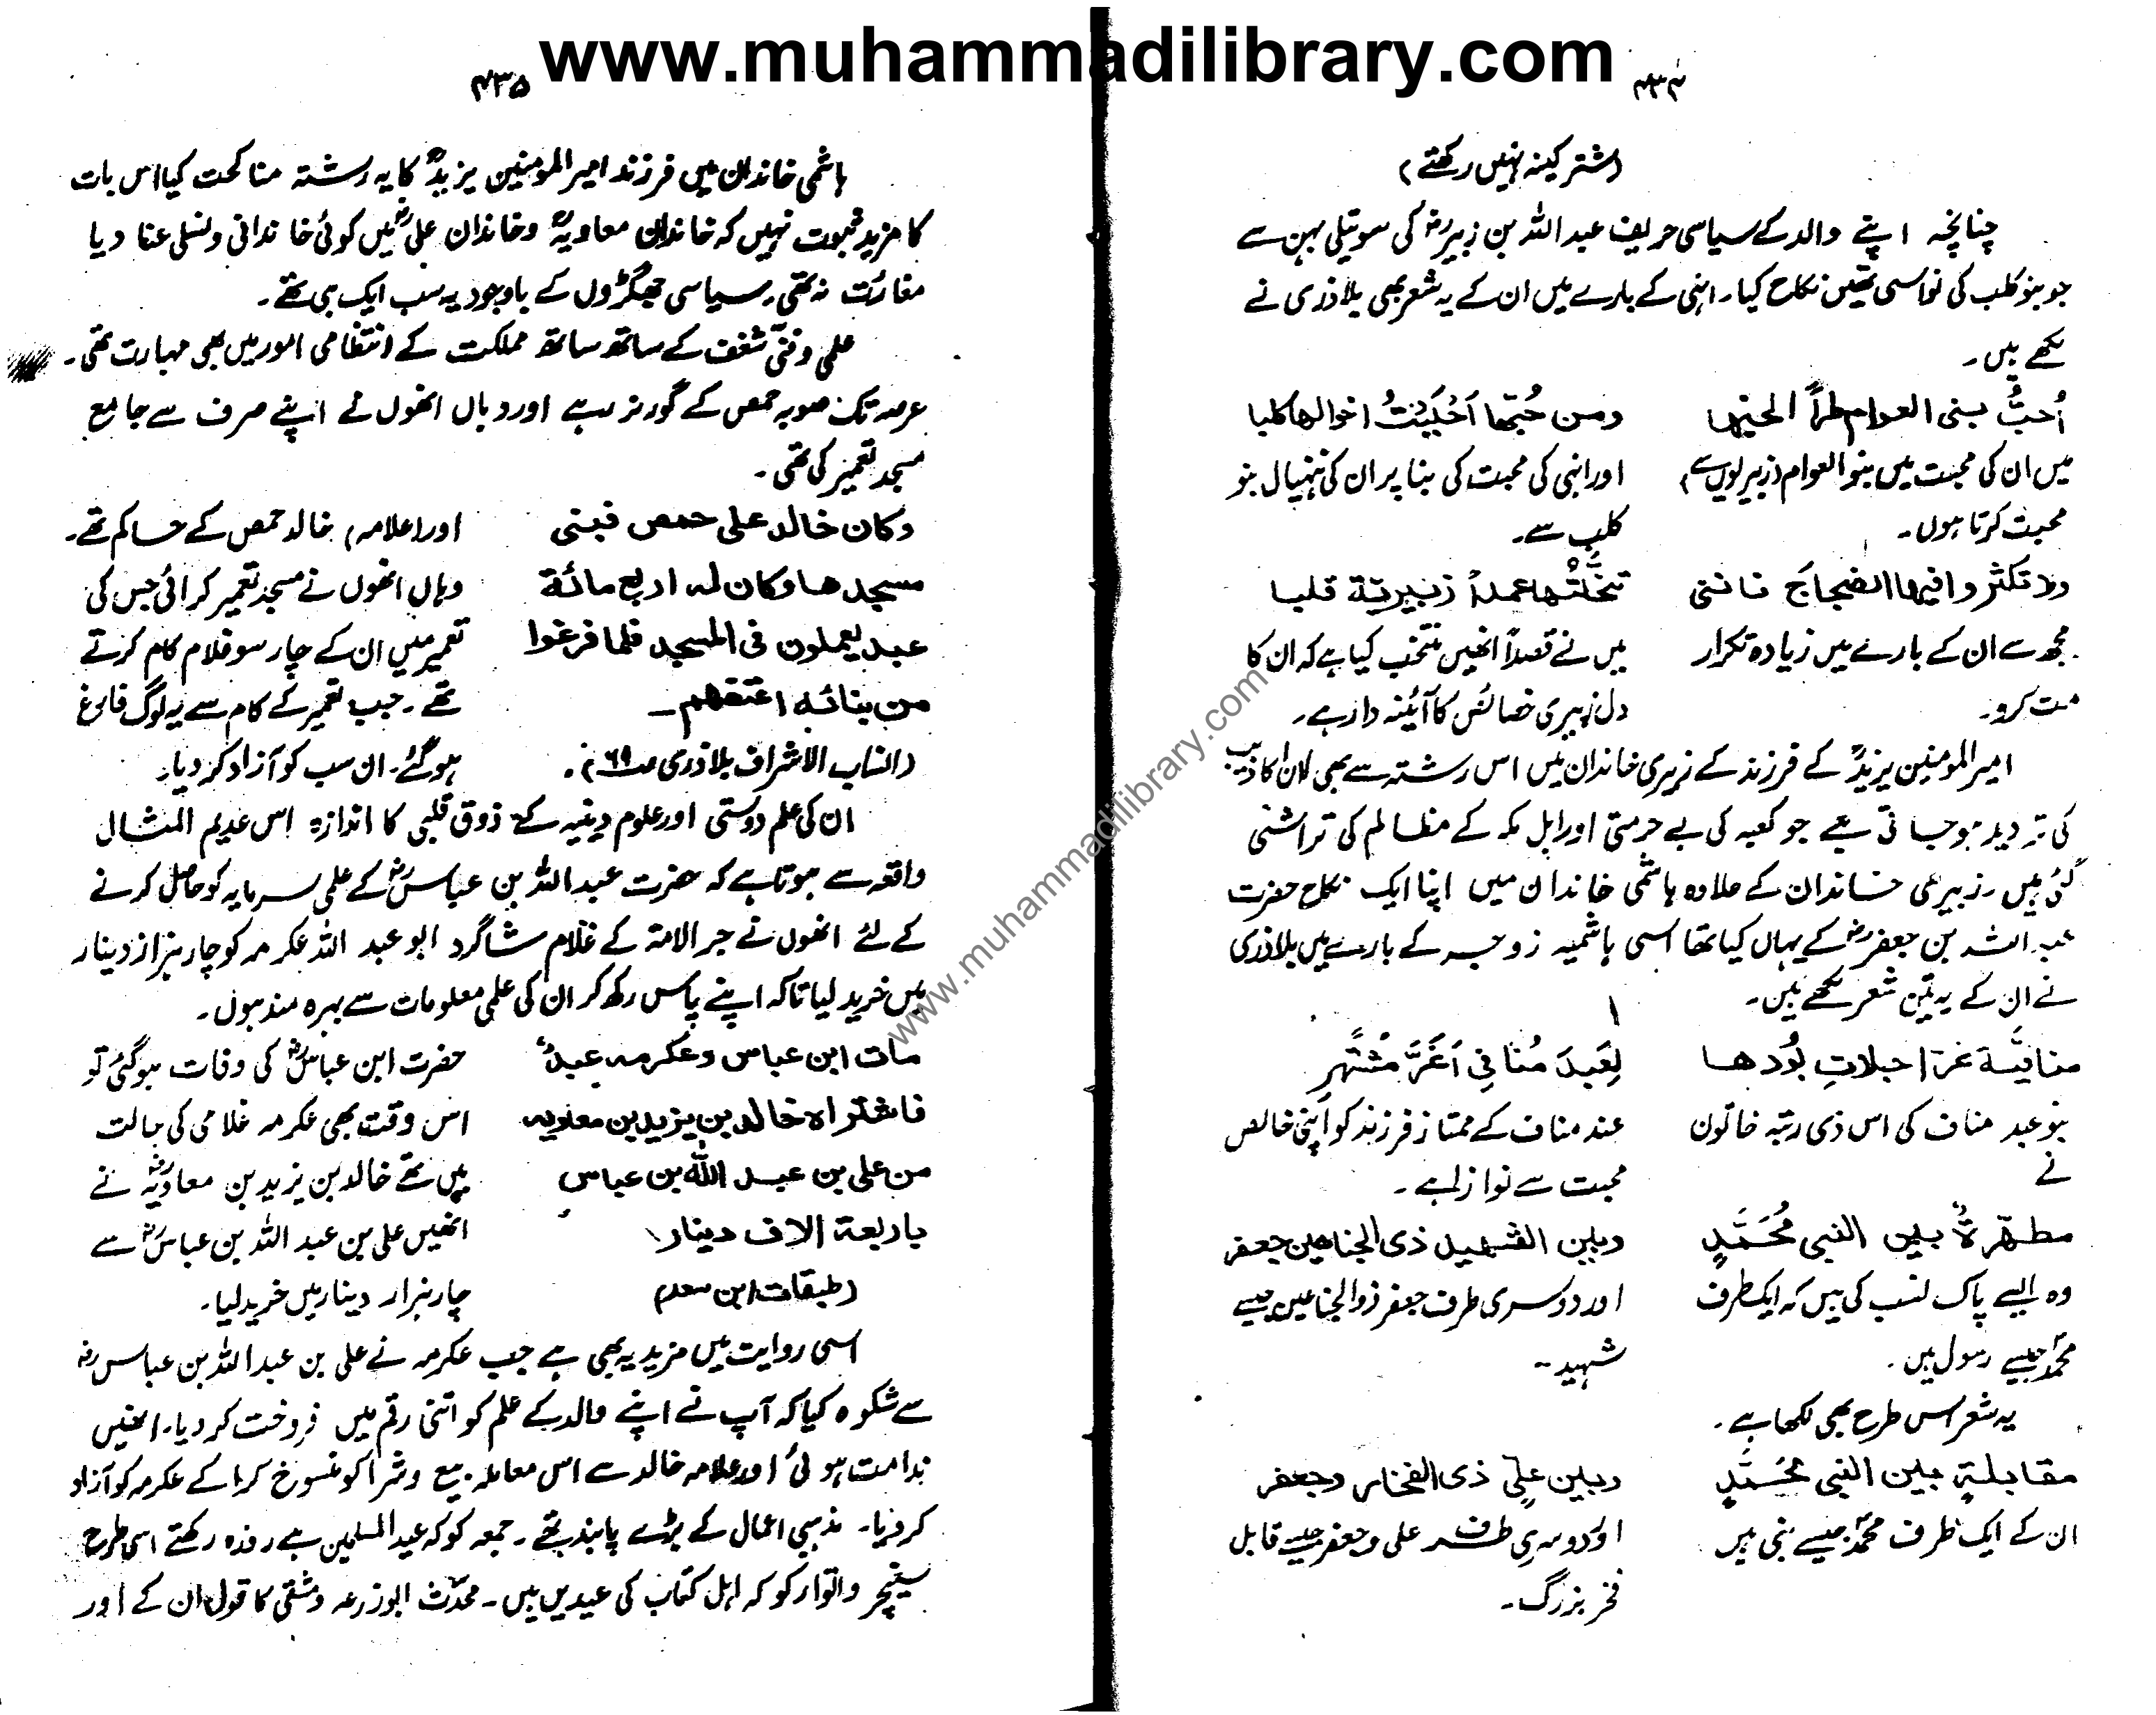 www.muhammadilibrary.com
۴۳۴
(شتر کینہ نہیں رکھتے)
چنانچہ اپنے والد کے سیاسی حریف عبداللہ بن زبیرؓ کی سوتیلی بہن سے
جو بنو کلب کی نواسی تھیں نکاح کیا۔ انہی کے بارے میں ان کے یہ شعر بھی بلاذری نے
لکھے ہیں۔
اُحبُّ بنی العوام طراً لحبّها ومن حُبّها اَحْبَبْتُ اخوالها کلبا
میں ان کی محبت میں بنو العوام (زبیریوں سے) اور انہی کی محبت کی بنا پر ان کی ننہیال بنو
محبت کرتا ہوں۔ کلب سے۔
ود تکثروا فیها الضجاجَ فاننی تخلّتُها عمداً زبیریّة قلبا
مجھ سے ان کے بارے میں زیادہ تکرار میں نے قصداً انھیں منتخب کیا ہے کہ ان کا
مت کرو۔ دل زبیری خصائص کا آئینہ دار ہے۔
امیر المومنین یزیدؒ کے فرزند کے زبیری خاندان میں اس رشتہ سے بھی ان اکاذیب
کی تردید ہو جاتی ہے جو کعبہ کی بے حرمتی اور اہل مکہ کے مظالم کی تراشی
گئی ہیں۔ زبیری خاندان کے علاوہ ہاشمی خاندان میں اپنا ایک نکاح حضرت
عبد اللہ بن جعفرؓ کے یہاں کیا تھا اسی ہاشمیہ زوجہ کے بارے میں بلاذری
نے ان کے یہ تین شعر لکھے ہیں۔
منافیّة غرّا جلاتِ بُودها لِعَبدِ مُنافی اَغَرَّ مُشَّهرِ
بنو عبد مناف کی اس ذی رتبہ خاتون عبد مناف کے ممتاز فرزند کو اپنی خالص
نے محبت سے نوازا ہے۔
مطهّرةٌ بین النبی مُحَمَّدٍ وبین الشهید ذی الجناحین جعفر
وہ ایسے پاک نسب کی ہیں کہ ایک طرف اور دوسری طرف جعفر ذو الجناحین جیسے
محمدؐ جیسے رسول ہیں۔ شہید۔
یہ شعر اس طرح بھی لکھا ہے۔
مقابلة بین النبی محمَّدٍ وبین علیٍ ذی الفخار وجعفر
ان کے ایک طرف محمدؐ جیسے نبی ہیں اور دوسری طرف علی و جعفر جیسے قابل
فخر بزرگ۔
۴۳۵
ہاشمی خاندان میں فرزند امیر المومنین یزیدؒ کا یہ رشتہ مناکحت کیا اس بات
کا مزید ثبوت نہیں کہ خاندان معاویہؓ و خاندان علیؓ میں کوئی خاندانی و نسلی عناد یا
مغائرت نہ تھی۔ سیاسی جھگڑوں کے باوجود یہ سب ایک ہی تھے۔
علمی و فنی شغف کے ساتھ ساتھ مملکت کے انتظامی امور میں بھی مہارت تھی۔
عرصہ تک صوبہ حمص کے گورنر رہے اور وہاں انھوں نے اپنے صرف سے جامع
مسجد تعمیر کی تھی۔
وکان خالد علی حمص فبنی اور (علامہ) خالد حمص کے حاکم تھے۔
مسجدها وکان له اربع مائة وہاں انھوں نے مسجد تعمیر کرائی جس کی
عبد یعملون فی المسجد فلما فرغوا تعمیر میں ان کے چار سو غلام کام کرتے
من بنائه اعتقهم۔ تھے۔ جب تعمیر کے کام سے یہ لوگ فارغ
(انساب الاشراف بلاذری ص۶۹)۔ ہو گئے۔ ان سب کو آزاد کر دیا۔
ان کی علم دوستی اور علوم دینیہ کے ذوق قلبی کا اندازہ اس عدیم المثال
واقعہ سے ہوتا ہے کہ حضرت عبداللہ بن عباسؓ کے علمی سرمایہ کو حاصل کرنے
کے لئے انھوں نے حبر الامة کے غلام شاگرد ابو عبد اللہ عکرمہ کو چار ہزار دینار
میں خرید لیا تاکہ اپنے پاس رکھ کر ان کی علمی معلومات سے بہرہ مند ہوں۔
مات ابن عباس وعکرمہ عبدٌ حضرت ابن عباسؓ کی وفات ہو گئی تو
فاشتراه خالد بن یزید بن معاویه اس وقت بھی عکرمہ غلامی کی حالت
من علی بن عبد اللّٰه بن عباس میں تھے خالد بن یزید بن معاویہؓ نے
باربعة الاف دینار انھیں علی بن عبد اللہ بن عباسؓ سے
(طبقات ابن سعد) چار ہزار دینار میں خرید لیا۔
اسی روایت میں مزید یہ بھی ہے جب عکرمہ نے علی بن عبداللہ بن عباسؓ
سے شکوہ کیا کہ آپ نے اپنے والد کے علم کو اتنی رقم میں فروخت کر دیا۔ انھیں
ندامت ہوئی اور علامہ خالد سے اس معاملہ بیع و شرا کو منسوخ کرا کے عکرمہ کو آزاد
کر دیا۔ مذہبی اعمال کے بڑے پابند تھے۔ جمعہ کو کہ عید المسلمین ہے روزہ رکھتے اسی طرح
سنیچر و اتوار کو کہ اہل کتاب کی عیدیں ہیں۔ محدّث ابوزرعہ دمشقی کا قول ان کے اور
www.muhammadilibrary.com